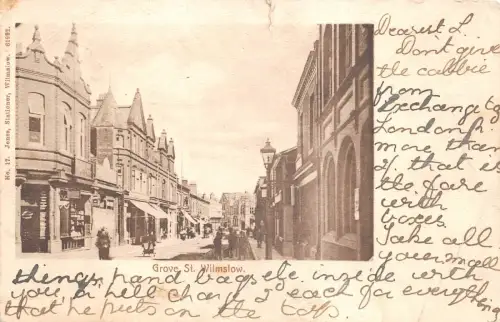 No. 17. Jesse, Stationer, Wilmslow. 61692.
Grove St. Wilmslow.
Dearest L.
Dont give
the cabbie
from
Exchange to
London Rd
more than
2/ that is
the fare
with
boxes.
Take all
your small
things, hand bags &c inside with
you, or he'll charge 2 each for every
that he puts on the top.